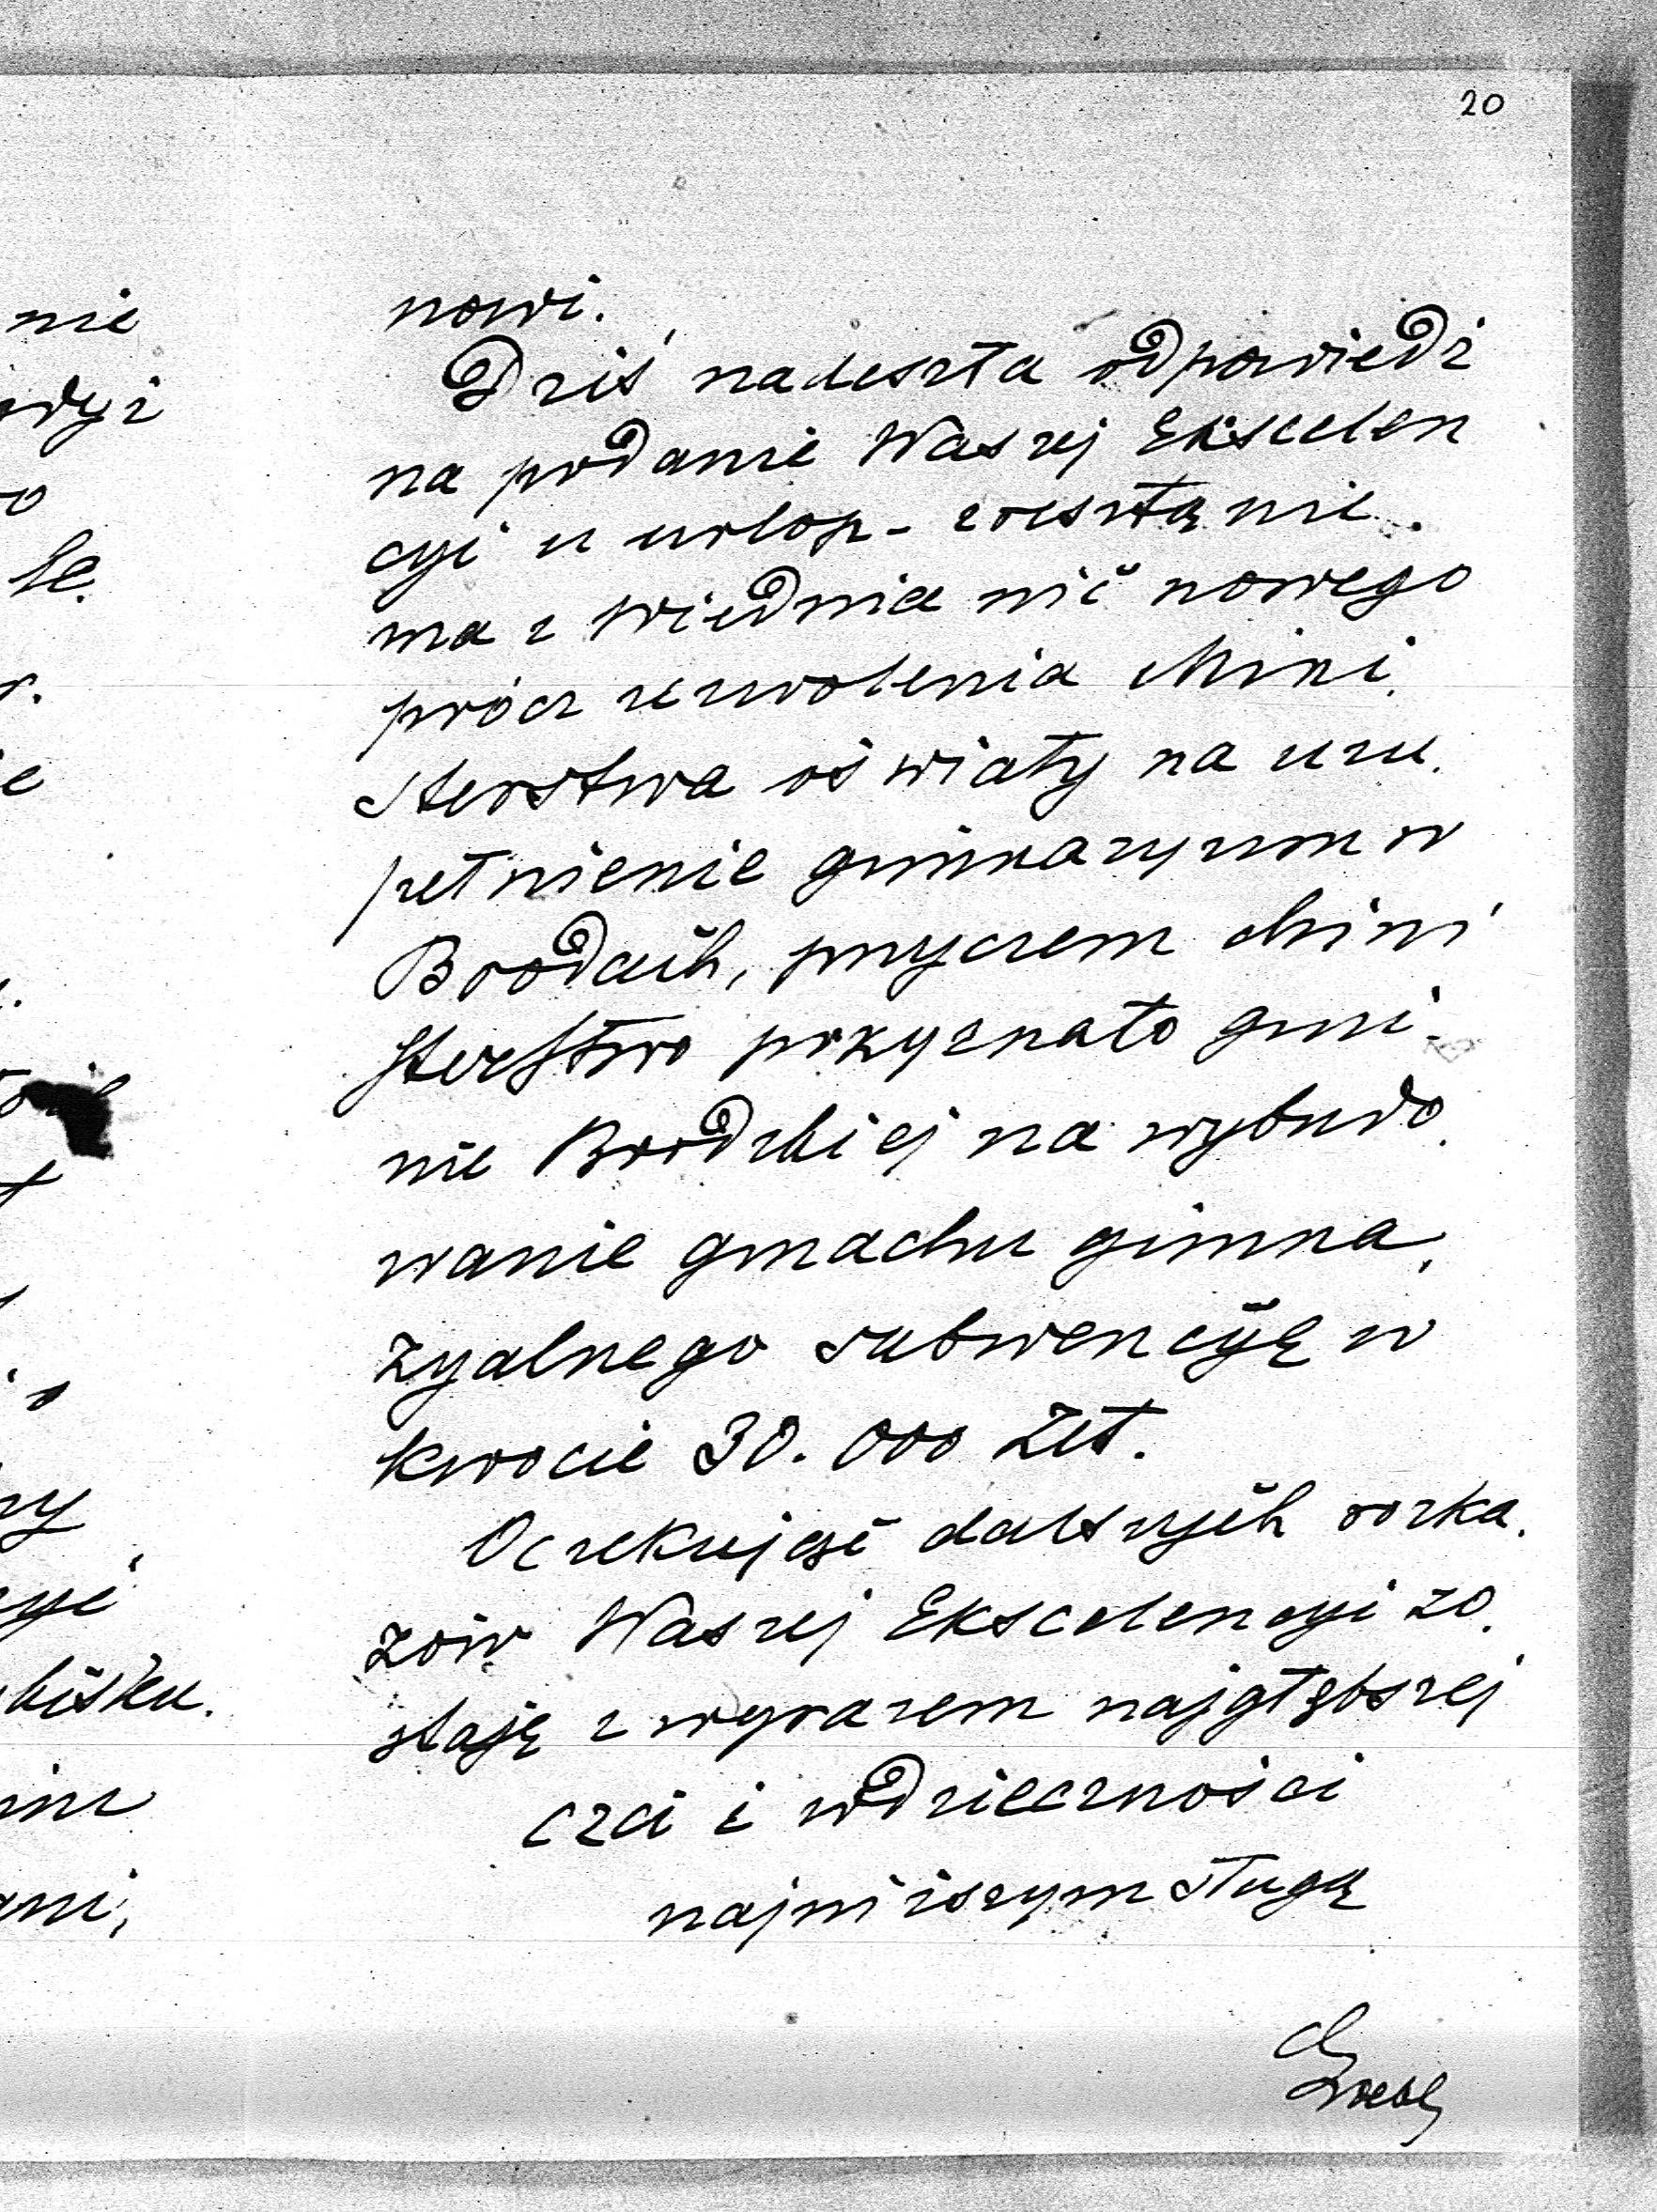 20
nowi.
Dziś nadeszła odpowiedź
na podanie Waszej Ekscelen
cyi u urlop - zresztą nie
ma z Wiednia nic nowego
prócz zezwolenia Mini
sterstwa oświaty na uzu
pełnienie gimnazyum w
Brodach, przyczem Mini
sterstwo przyznało gmi-
nie Brodzkiej na wybudo
wanie gmachu gimna
zyalnego subwencyę w
kwocie 30.000 Zł.
Oczekując dalszych rozka
zów Waszej Ekscelencyi zo
staję z wyrazem najgłębszej
czci i wdzięczności
najniższym sługą
nie
le.